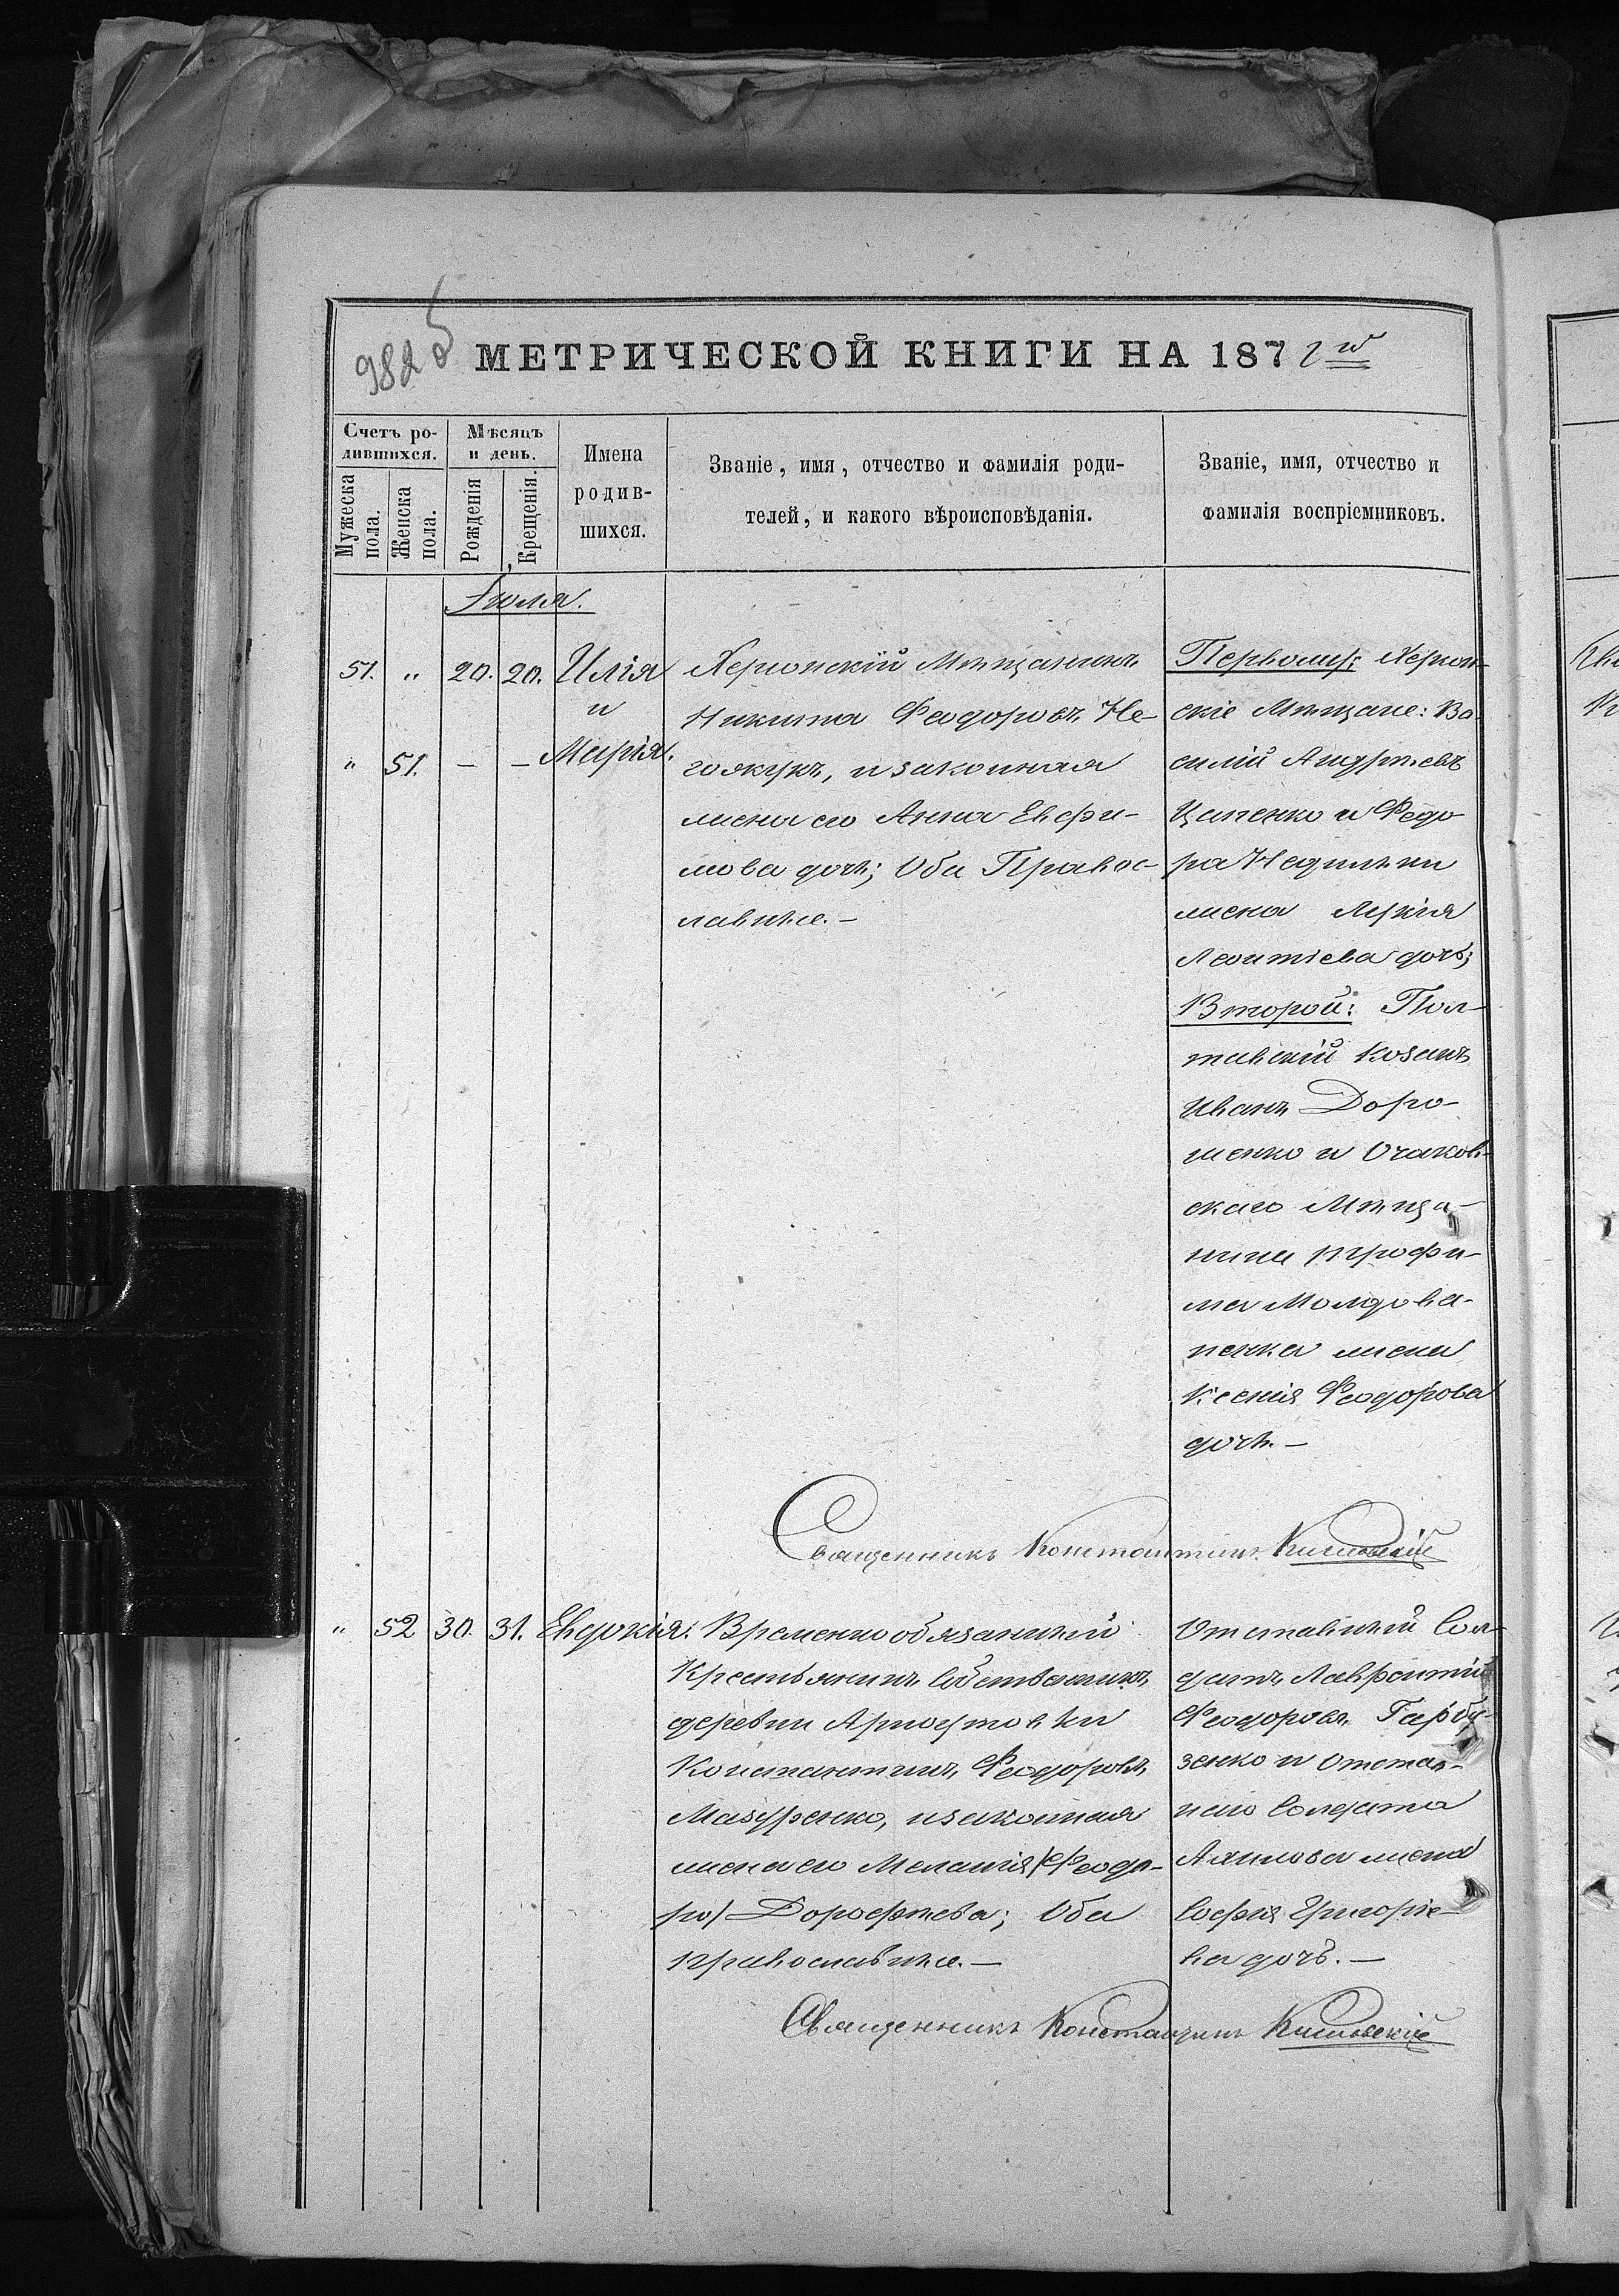 982 об
МЕТРИЧЕСКОЙ КНИГИ НА 187 2 й
Счетъ ро-
дившихся.
Мужеска
пола.
Женска
пола.
Мѣсяцъ
и день.
Рожденія
Крещенія.
Имена
родив-
шихся.
Званіе, имя, отчество и фамилія роди-
телей, и какого вѣроисповѣданія.
Званіе, имя, отчество и
фамилія воспріемниковъ.
Іюля.
51. " 20. 20. Илія
и
" 51. - - Марія.
Херсонскій Мѣщанинъ
Никита Феодоровъ Не-
гоякуръ, и законная
жена его Анна Евфи-
мова дочь; Оба Правос-
лавные. -
Первому: Херсон-
скіе Мѣщане: Ва-
силій Андреевъ
Цапенко и Федо-
ра
жена
Леонтіева дочь;
Второй: Пол-
тавскій козакъ
Иванъ Доро-
шенко и Очаков-
скаго Мѣща-
нина Трофи-
ма Молдова-
ненка жена
Ксенія Феодорова
дочь. -
Священникъ Константинъ
" 52 30. 31. Евдокія.
Временно обязанный
Крестьянинъ Собственникъ
деревни Арнаутовки
Константинъ Феодоровъ
Мазуренко, и законная
жена его Меланія /Феодо-
ра/ Дорофеева; Оба
православные. -
Отставный Сол-
датъ Лаврентій
Феодоровъ Гарбу-
зенко и Отстав-
наго Солдата
жена
Софія Григоріе-
ва дочь. -
Священникъ Константинъ